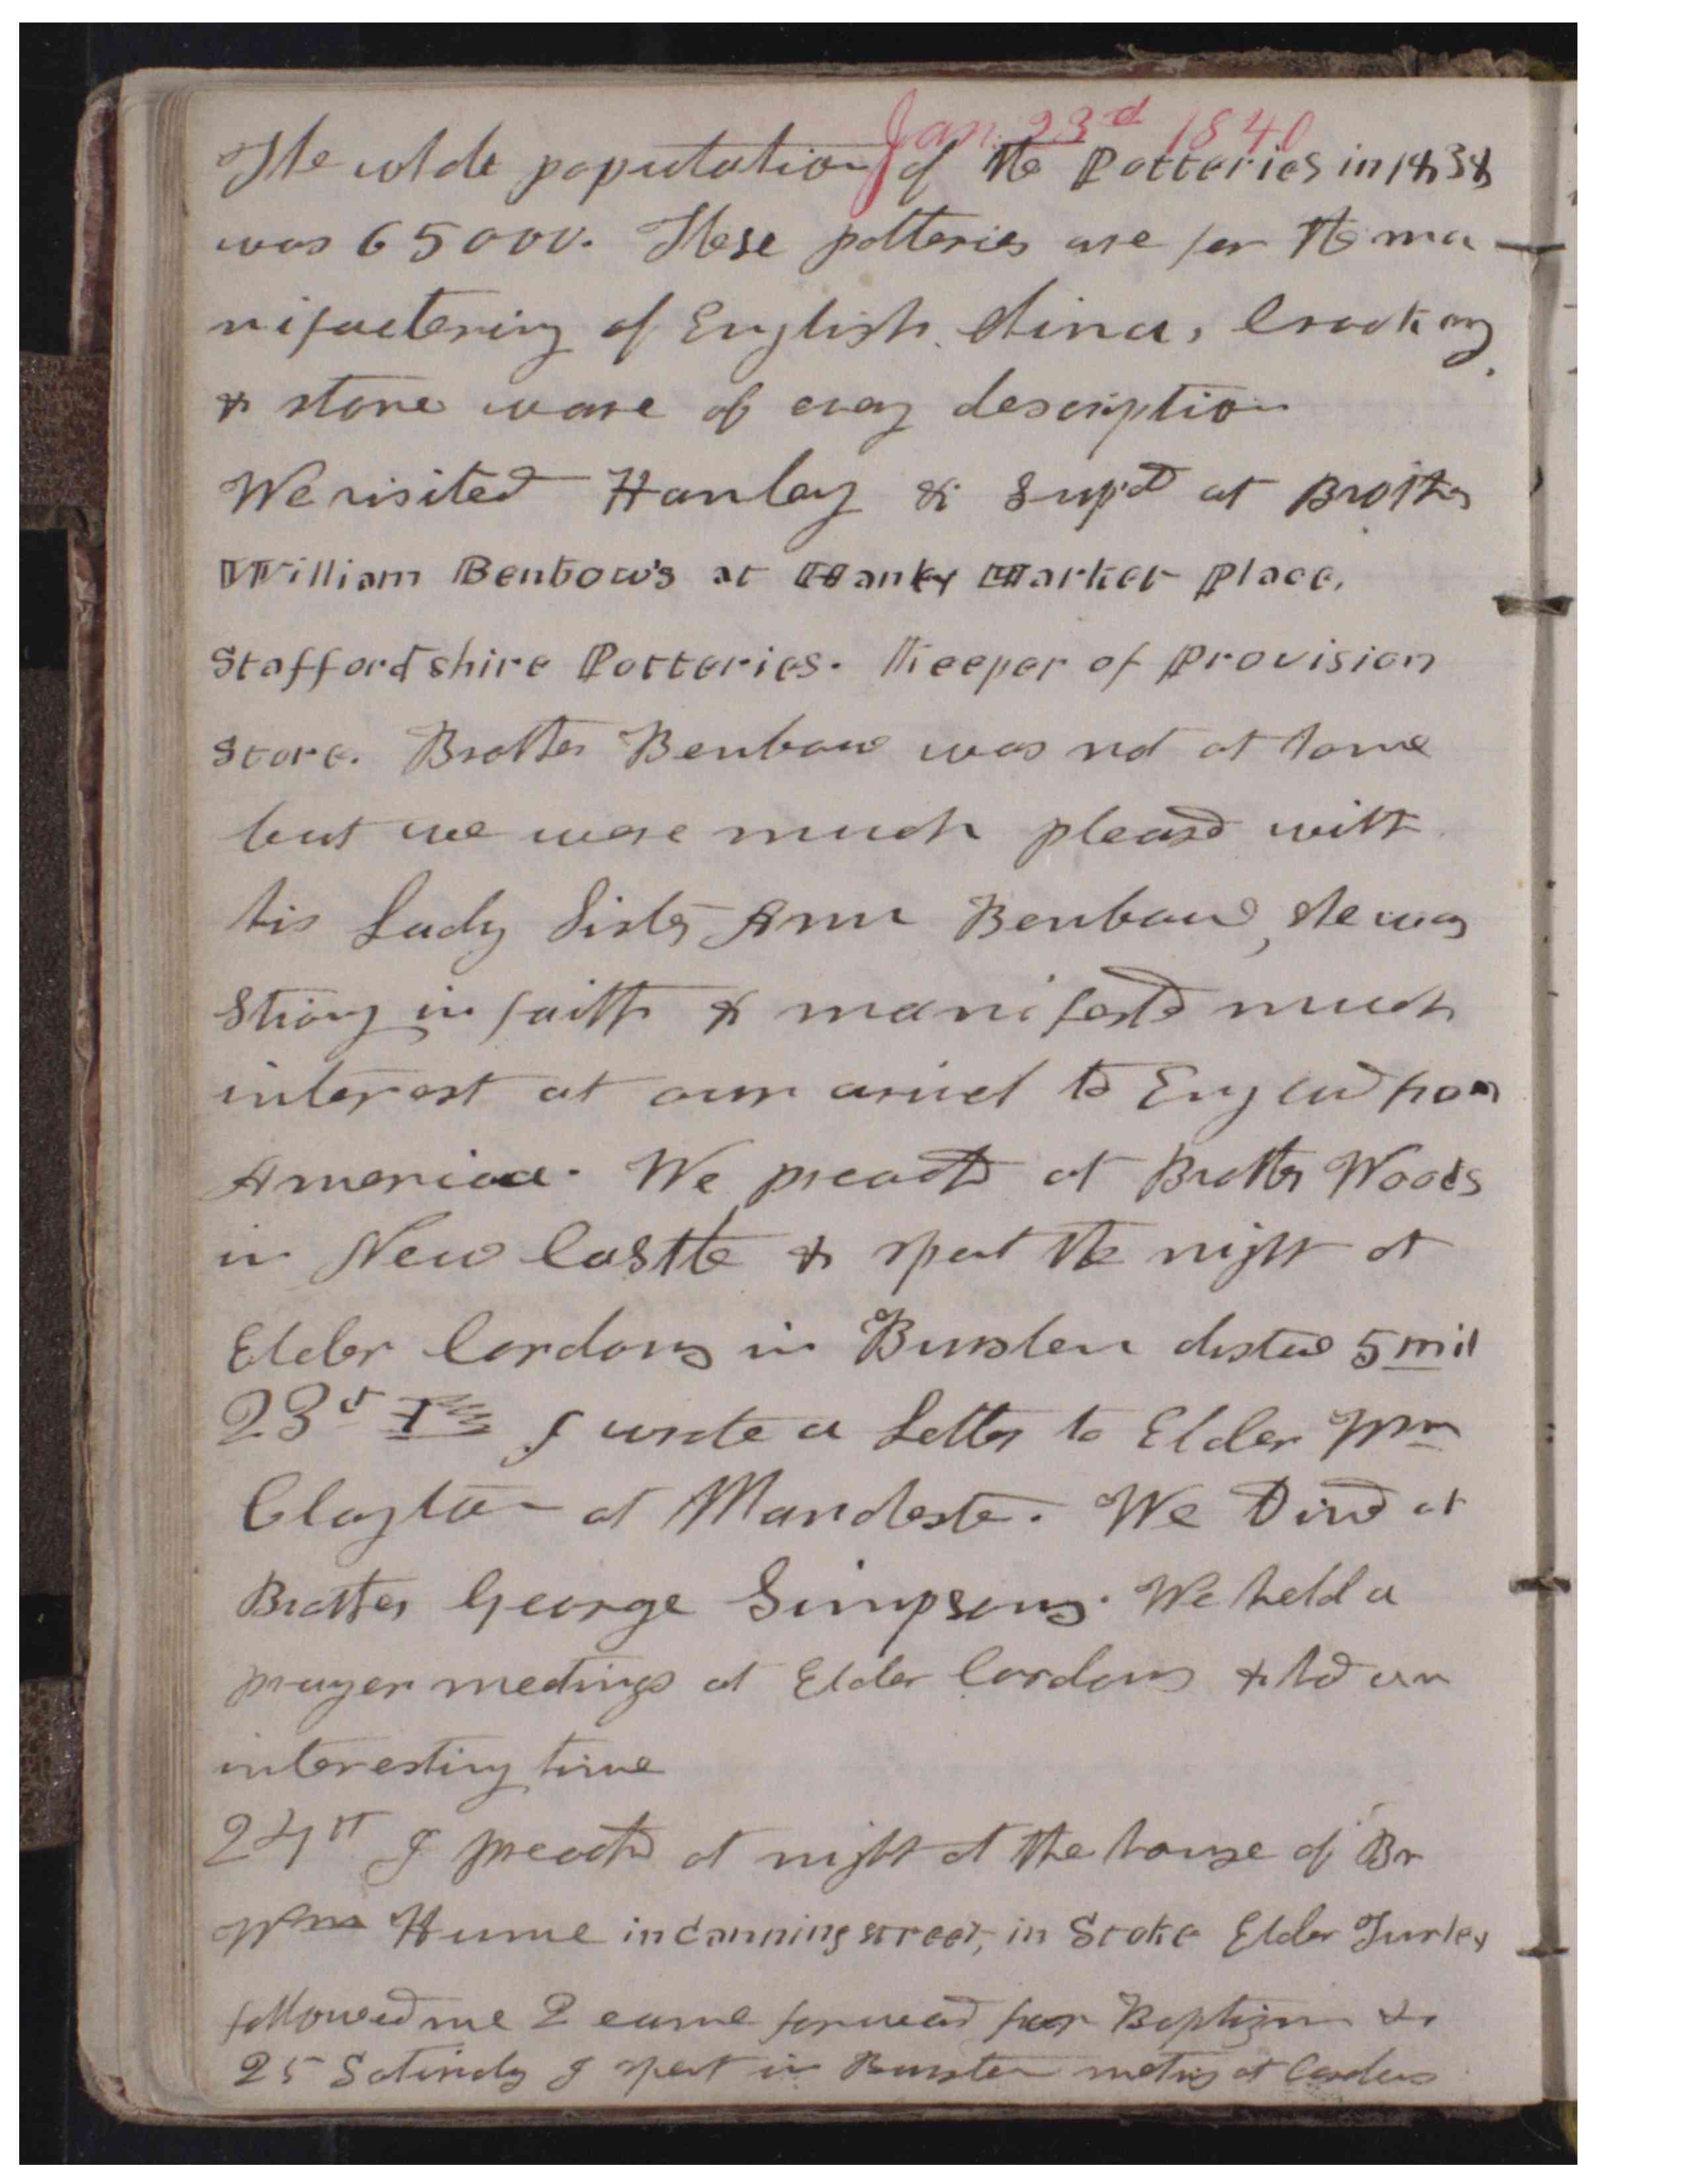 Jan. 23d 1840
The whole population of the Potteries in 1838
was 65000. These potteries are for the ma-
nifactering of English China, Crockery
& stone ware of evry description
We visited Hanley & Sup'd at Brother
William Benbow's at Hanley Market Place,
Staffordshire Potteries. Keeper of Provision
Store. Brother Benbow was not at home
but we were much pleasd with
his Lady Sister Ann Benbow, she was
Strong in faith & manifestd much
interest at our arivel to England from
America. We preachd at Brother Woods
in New Castle & spent the night at
Elder Cordons in Burslem distand 5 mil
23d I wrote a Letter to Elder Wm
Clayton at Manchester. We Dined at
Brother George Simpsons. We held a
prayer meetings at Elder Cordons & had an
interesting time
24th I preachd at night at the house of Br
Wm Hume in canning street, in Stoke Elder Turley
followed me 2 came forward for Baptism &c
25 Saturdy I spent in Burslem meting at Cordons